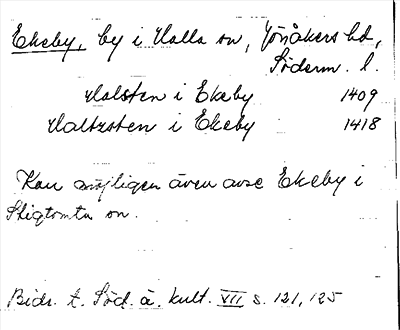 Ekeby, by i Halla sn, Jönåkers hd,
Söderm. l.
Halsten i Ekeby 1409
Haltzsten i Ekeby 1418
Kan möjligen även avse Ekeby i
Stigtomta sn.
Bidr. t. Söd. ä. kult. VII s. 121, 125